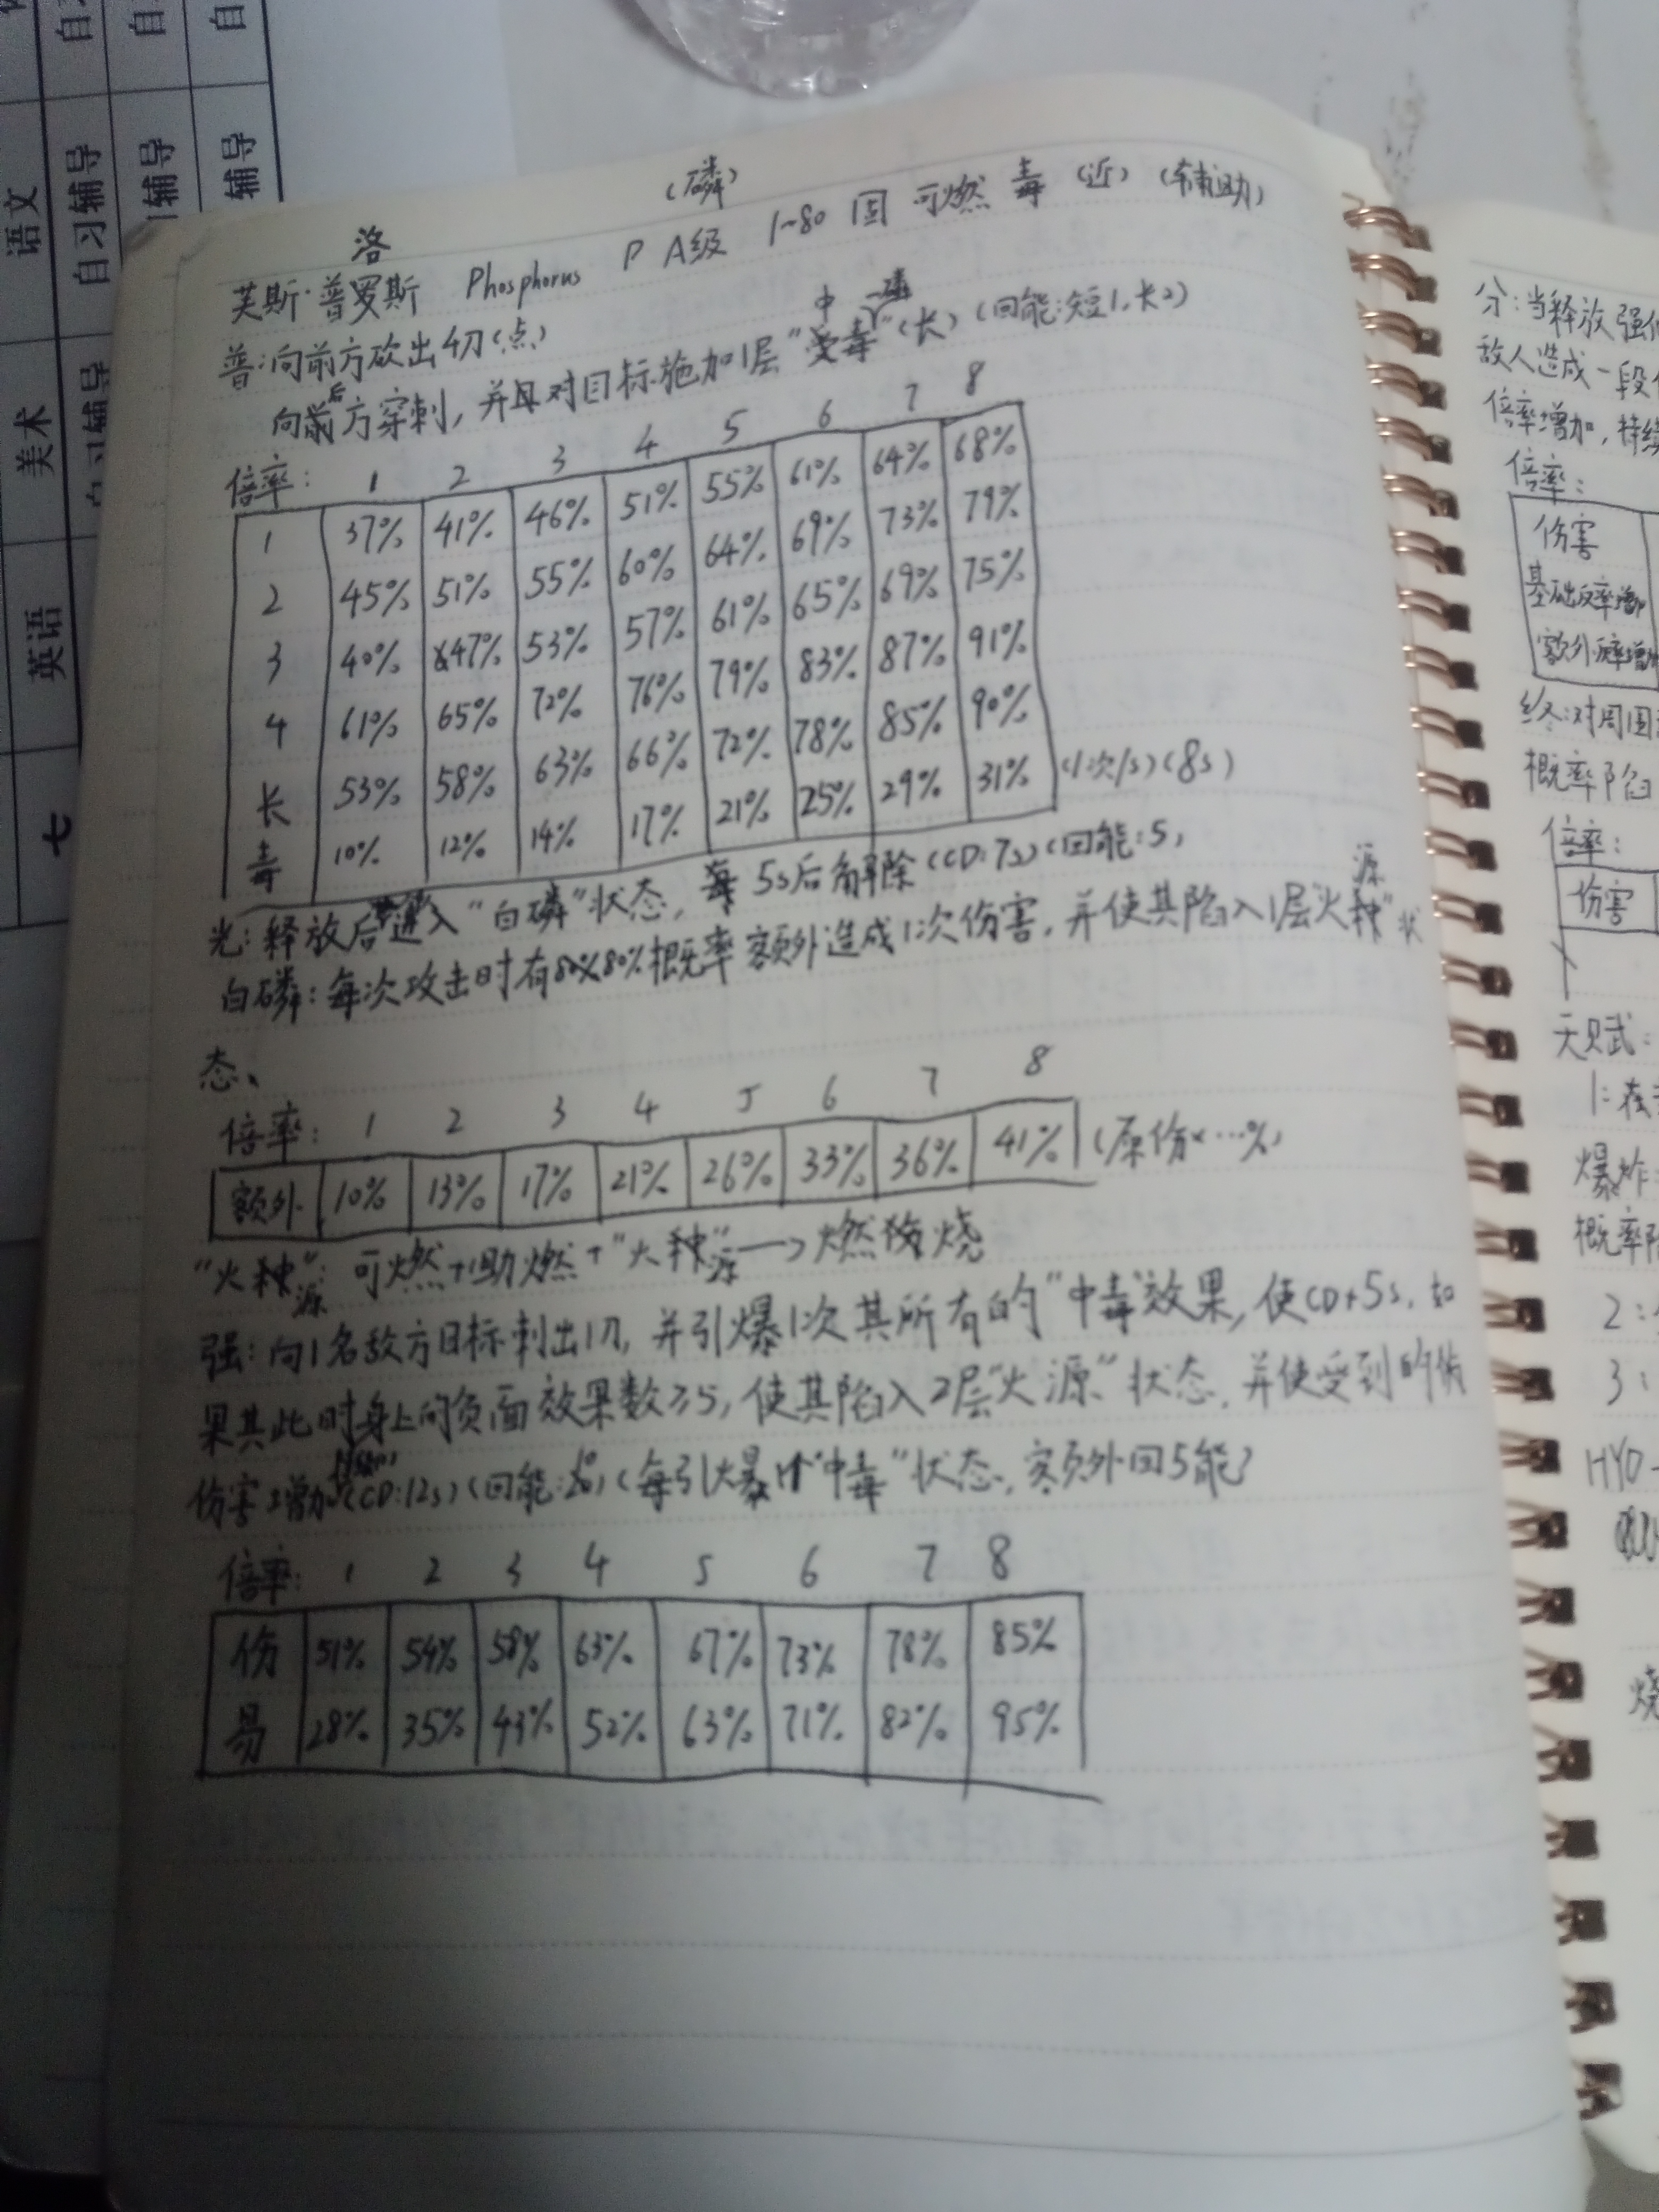 (磷)
洛
芙斯·普罗斯 Phosphorus P A级 1~80 固 可燃 毒 (近) (辅助)
普:向前方砍出4刀(点)
中
后
向前方穿刺,并且对目标施加1层"受毒"(长) (回能:短1,长2)
倍率: 1 2 3 4 5 6 7 8
1 37% 41% 46% 51% 55% 61% 64% 68%
2 45% 51% 55% 60% 64% 69% 73% 79%
3 40% 47% 53% 57% 61% 65% 69% 75%
4 61% 65% 72% 76% 79% 83% 87% 91%
长 53% 58% 63% 66% 72% 78% 85% 90%
毒 10% 12% 14% 17% 21% 25% 29% 31% (1次/s)(8s)
光:释放后进入"白磷"状态, 5s后解除(CD:7s)(回能:5)
源
白磷:每次攻击时有80%概率额外造成1次伤害,并使其陷入1层"火种"状
态、
倍率: 1 2 3 4 5 6 7 8
额外 10% 13% 17% 21% 26% 33% 36% 41% (原伤×…%)
"火种"源: 可燃+助燃+"火种"源→燃烧
强:向1名敌方目标刺出1刀,并引爆1次其所有的"中毒"效果,使CD+5s,如
果其此时身上的负面效果数≥5,使其陷入2层"火源"状态,并使受到的
伤害增加(CD:12s)(回能: )(每引爆1个"中毒"状态,额外回5能)
倍率: 1 2 3 4 5 6 7 8
伤 51% 54% 58% 63% 67% 73% 78% 85%
易 28% 35% 43% 52% 63% 71% 82% 95%
分:当释放强
敌人造成一段
倍率增加,持续
倍率:
伤害
终:对周围
概率陷
倍率:
伤害
天赋:
1:在
爆炸
概率陷
2:
3:
HYO
烧
语文
美术
英语
七
自习辅导
自习辅导
辅导
辅导